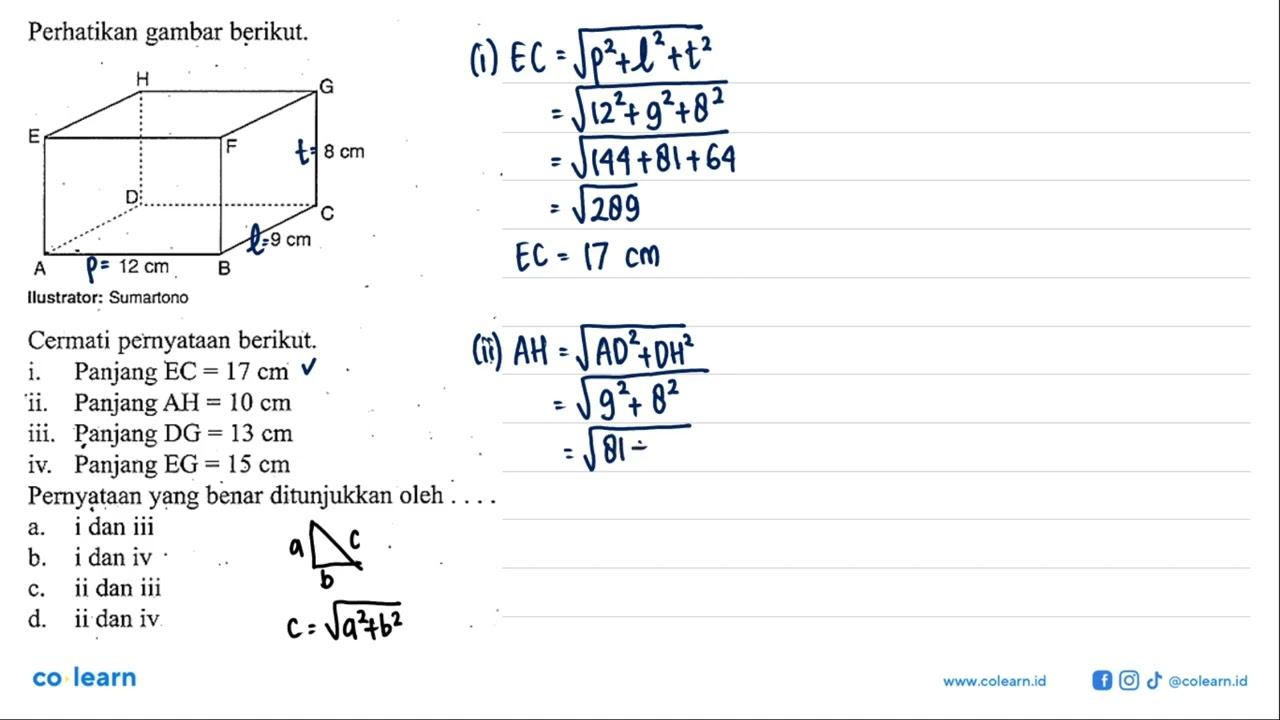 Perhatikan gambar berikut.
H
G
E
F
t= 8 cm
D
C
l=9 cm
A
p= 12 cm
B
Ilustrator: Sumartono
Cermati pernyataan berikut.
i. Panjang EC = 17 cm ✓
ii. Panjang AH = 10 cm
iii. Panjang DG = 13 cm
iv. Panjang EG = 15 cm
Pernyataan yang benar ditunjukkan oleh . . . .
a. i dan iii
b. i dan iv
c. ii dan iii
d. ii dan iv
a
c
b
c = √a²+b²
(i) EC = √p²+l²+t²
= √12²+9²+8²
= √144+81+64
= √289
EC = 17 cm
(ii) AH = √AD²+DH²
= √9²+8²
= √81 -
co learn
www.colearn.id
@colearn.id